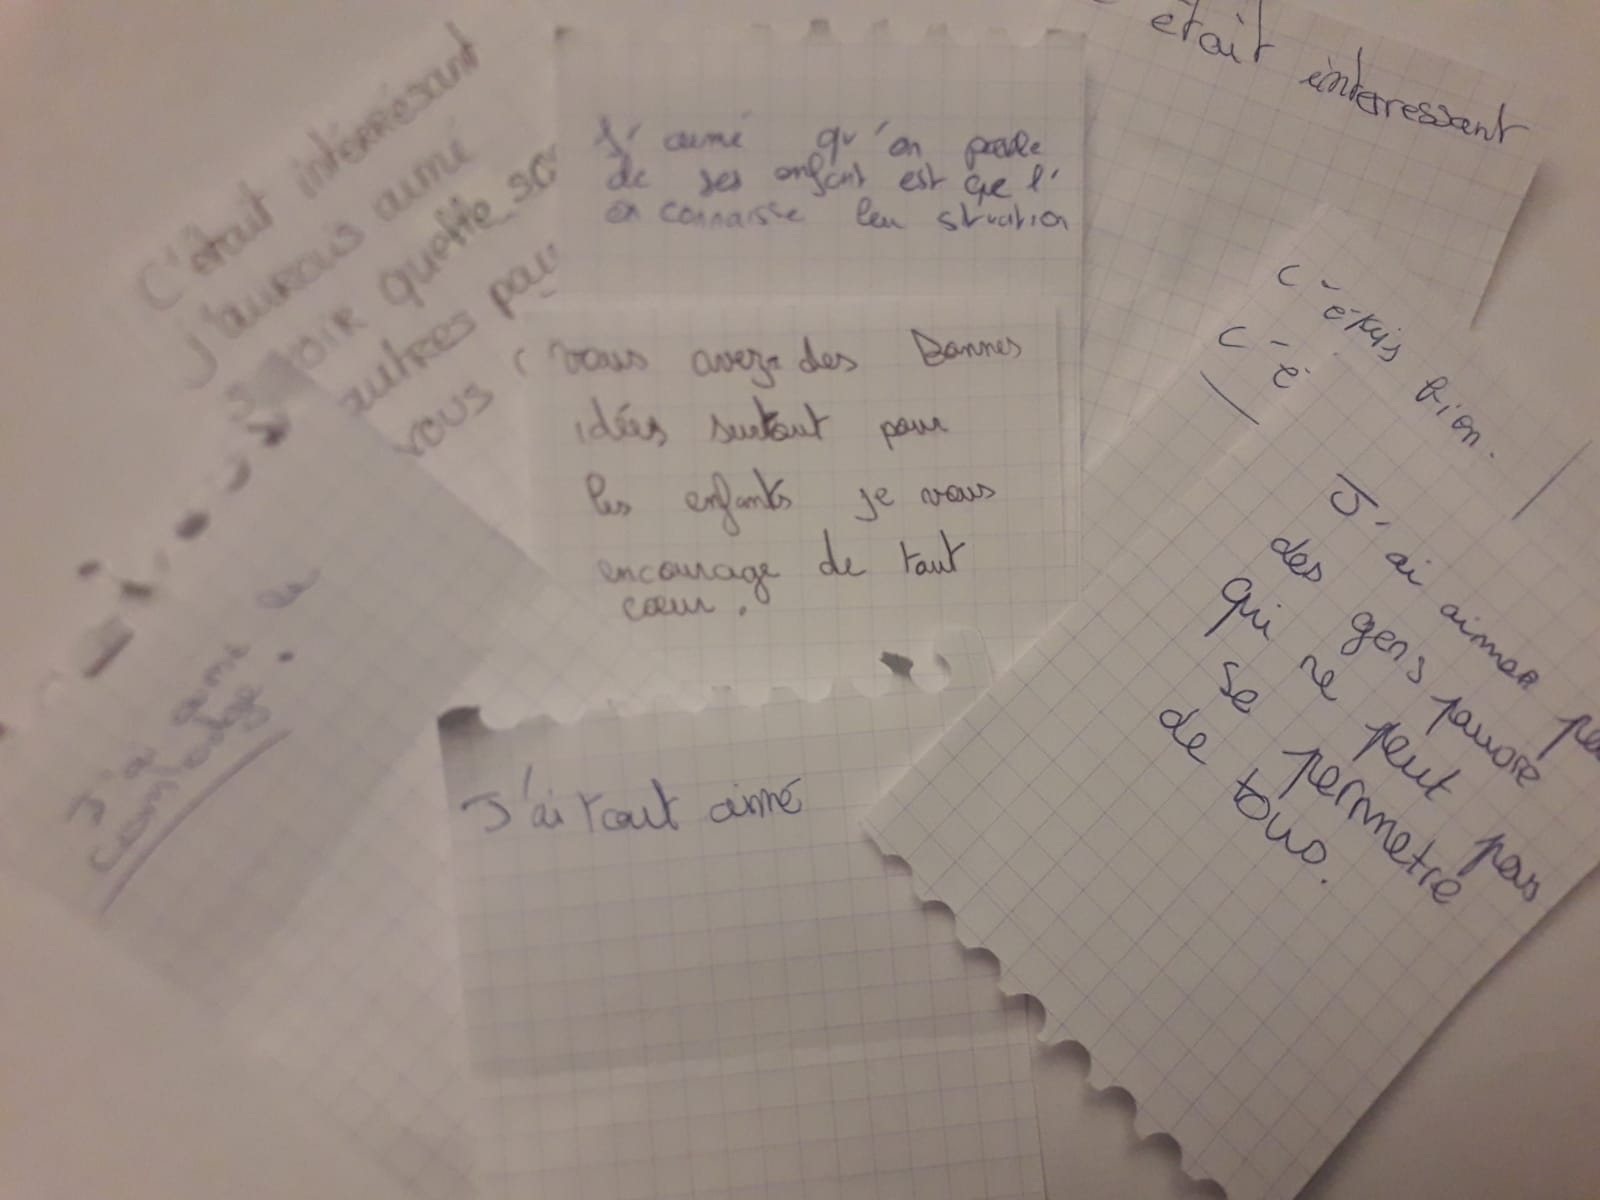 C'était intérrésant
J'aurais aimé
autres pay
vous
J' aimé qu'on parle
de ses enfant est que l'
on connaisse leu situation
était interressant
vous avez des Bonnes
idées surtout pour
les enfants je vous
encourage de tout
cœur.
C'étais bien.
C'é
J'ai aimer
des gens pauvre
qui ne peut pas
se permetre
de tous.
J'ai amé
J'ai tout aimé